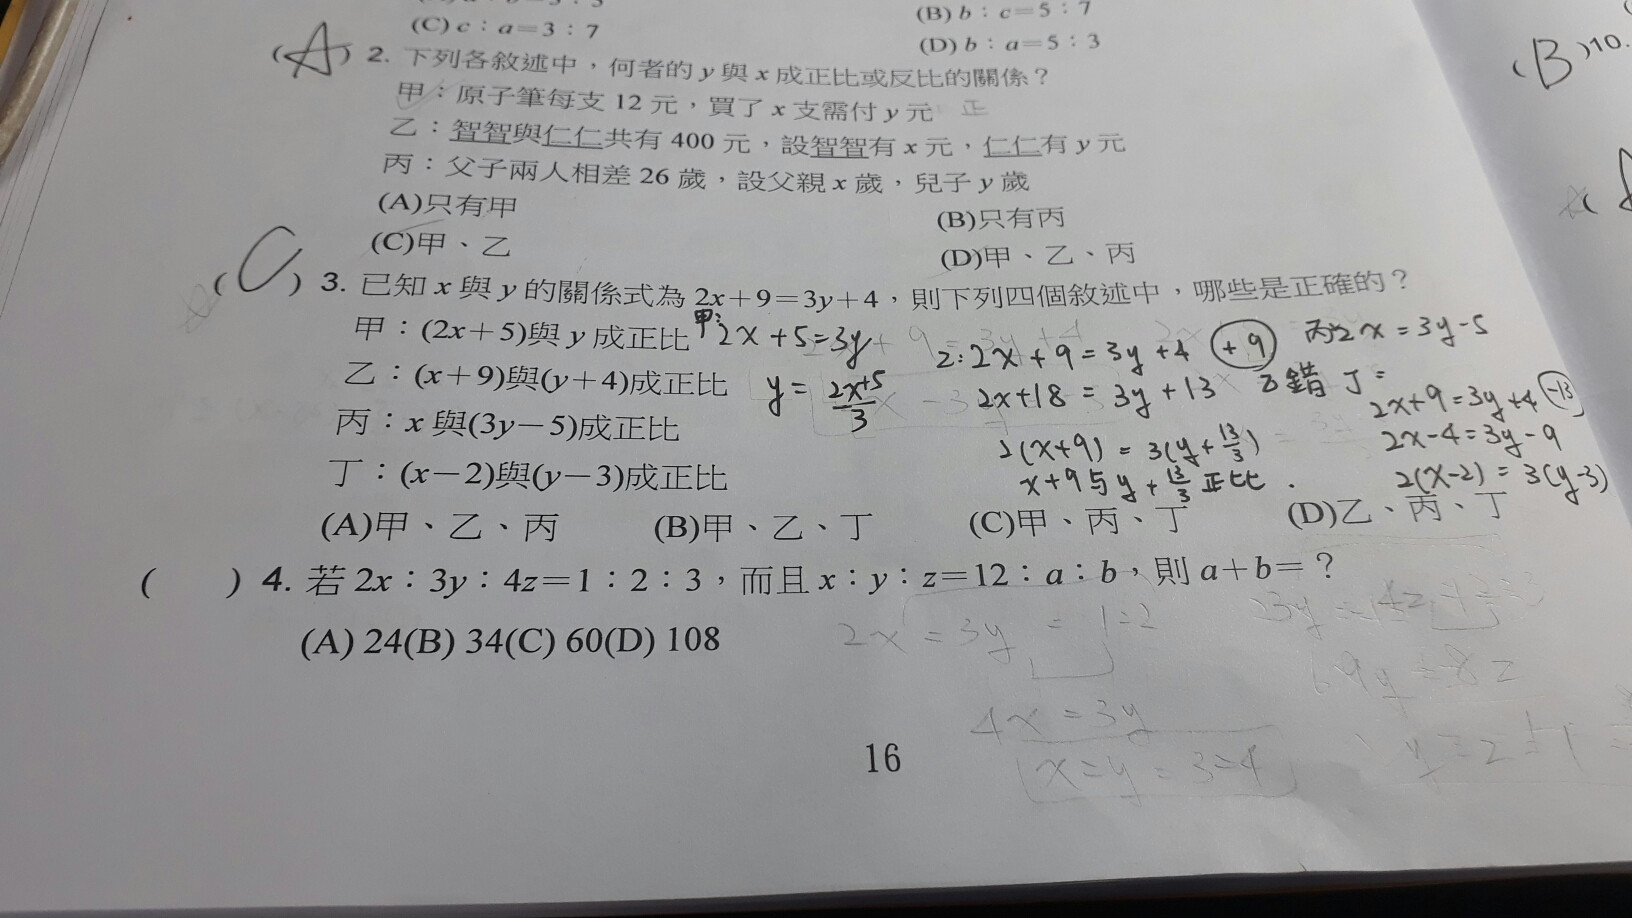 (C) c：a＝3：7
(B) b：c＝5：7
(D) b：a＝5：3
(A) 2. 下列各敘述中，何者的 y 與 x 成正比或反比的關係？
甲：原子筆每支 12 元，買了 x 支需付 y 元 正
乙：智智與仁仁共有 400 元，設智智有 x 元，仁仁有 y 元
丙：父子兩人相差 26 歲，設父親 x 歲，兒子 y 歲
(A)只有甲
(B)只有丙
(C)甲、乙
(D)甲、乙、丙
(C) 3. 已知 x 與 y 的關係式為 2x＋9＝3y＋4，則下列四個敘述中，哪些是正確的？
甲：(2x＋5)與 y 成正比
乙：(x＋9)與(y＋4)成正比
丙：x 與(3y－5)成正比
丁：(x－2)與(y－3)成正比
甲: 2x+5=3y
y=\frac{2x+5}{3}
2x+9=3y+4 +9
2x+18=3y+13 乙錯
2(x+9)=3(y+\frac{13}{3})
x+9与y+\frac{13}{3}正比.
丙: 2x=3y-5
丁:
2x+9=3y+4 -13
2x-4=3y-9
2(x-2)=3(y-3)
(A)甲、乙、丙
(B)甲、乙、丁
(C)甲、丙、丁
(D)乙、丙、丁
( ) 4. 若 2x：3y：4z＝1：2：3，而且 x：y：z＝12：a：b，則 a＋b＝？
(A) 24(B) 34(C) 60(D) 108
2x=3y=1=2
4x=3y
x=y=3=4
16
(B)10.